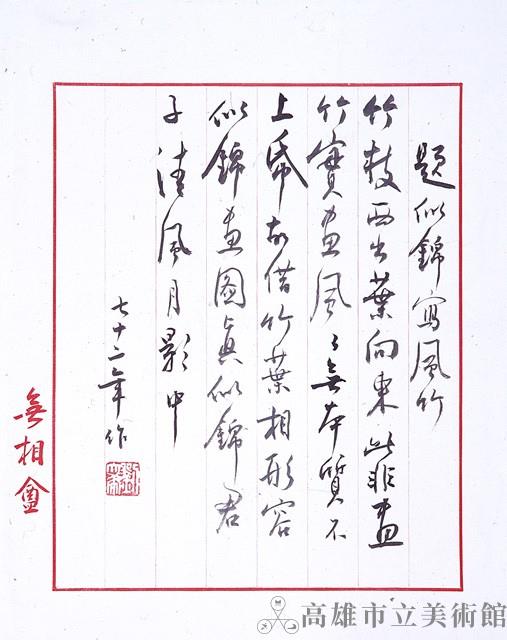 題似錦寫風竹
竹枝西出葉向東此非畫
竹實畫風〻無本質不
上帋故借竹葉相形容
似錦畫圖真似錦君
子清風月影中
七十二年作
無相盦
高雄市立美術館